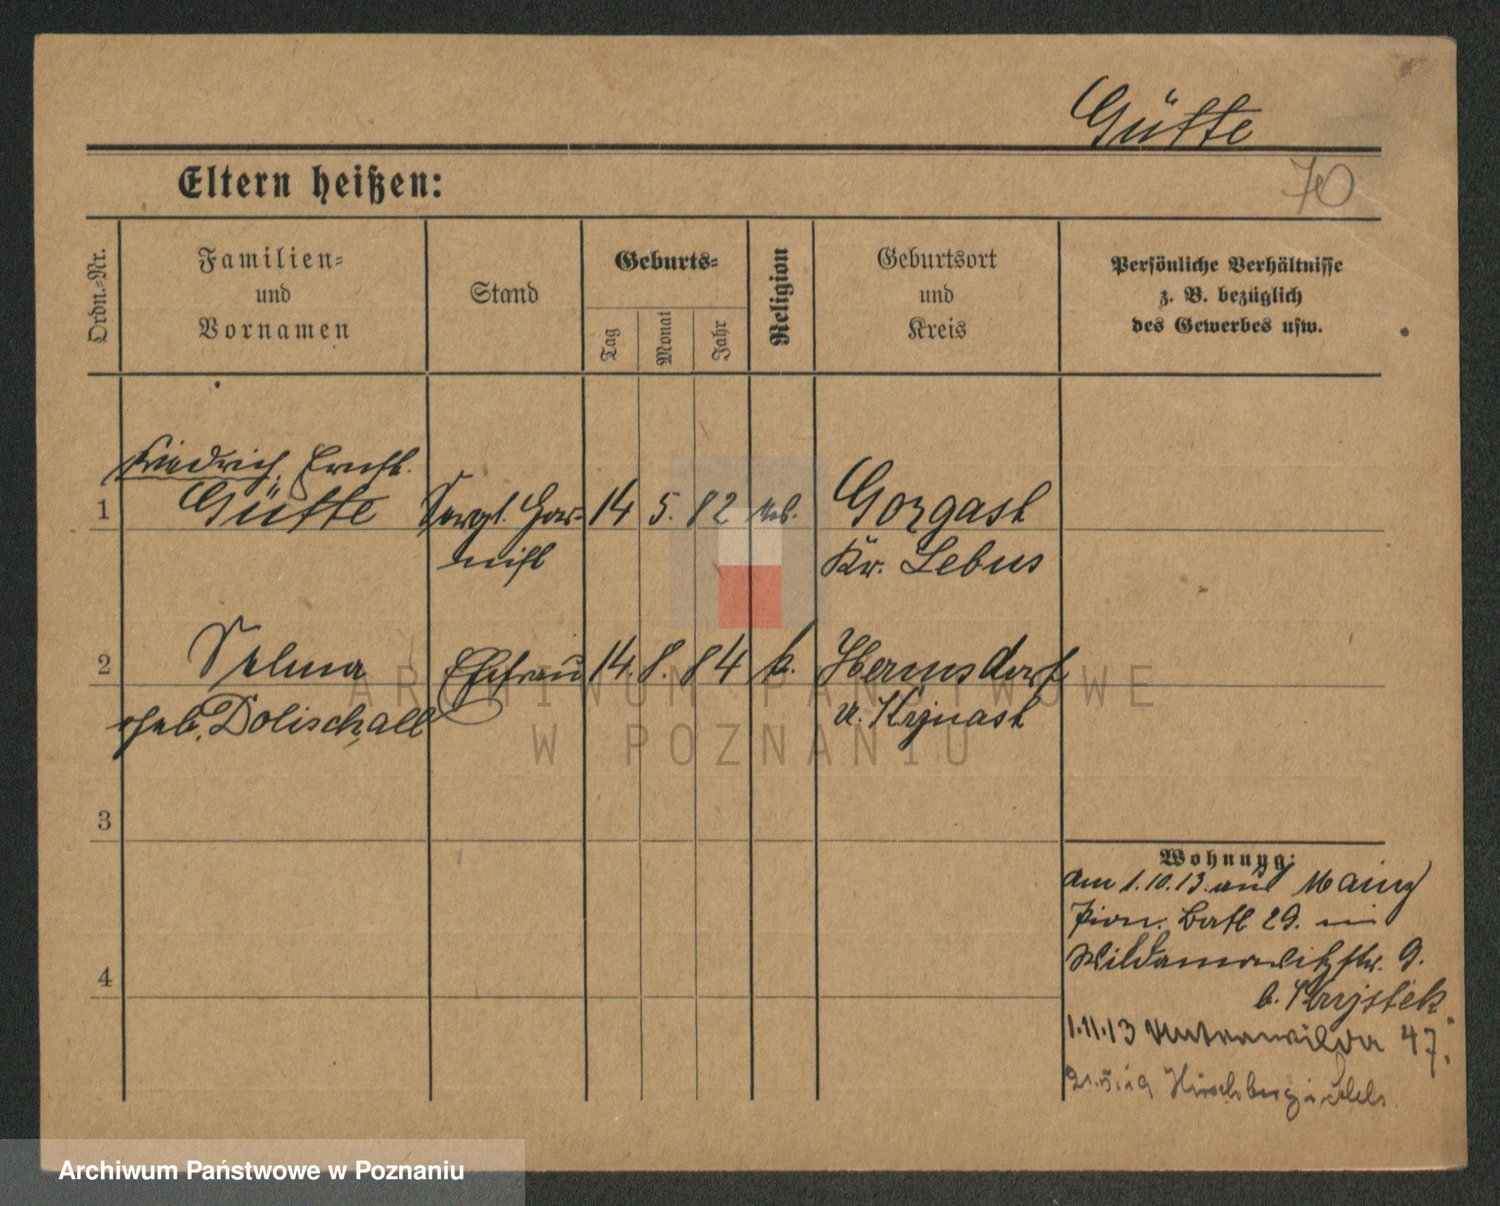 Gütte
70
Eltern heißen:
Ordn.-Nr.
Familien-
und
Vornamen
Stand
Geburts-
Tag
Monat
Jahr
Religion
Geburtsort
und
Kreis
Persönliche Verhältnisse
z. B. bezüglich
des Gewerbes usw.
Friedrich, Ernst.
1 Gütte Sergt. 14 5. 82 Gorgast
Kr. Lebus
2 Selma Ehefrau 14. 8. 84 k. Hermsdorf
geb. Dolischall u. Kynast
3
Wohnung:
am 1.10.13. aus Mainz
Pion. Batl 29.
4
Wildamowitzstr. 9.
b.
1.11.13 Unterwilda 47.
Hirschberg i. Schls.
ARCHIWUM PAŃSTWOWE
W POZNANIU
Archiwum Państwowe w Poznaniu